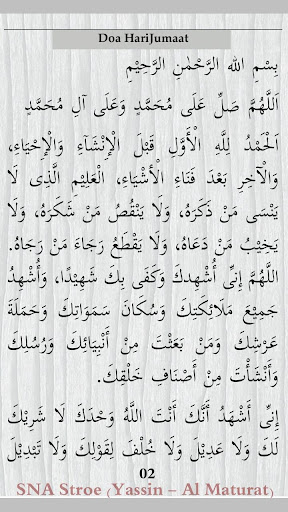 Doa HariJumaat
بِسْمِ اللهِ الرَّحْمٰنِ الرَّحِيْمِ
اَللَّهُمَّ صَلِّ عَلَى مُحَمَّدٍ وَعَلَى آلِ مُحَمَّدٍ
اَلْحَمْدُ لِلَّهِ الْأَوَّلِ قَبْلَ الْإِنْشَآءِ وَالْإِحْيَاءِ،
وَالْآخِرِ بَعْدَ فَنَاءِ الْأَشْيَاءِ، الْعَلِيْمِ الَّذِى لَا
يَنْسَى مَنْ ذَكَرَهُ، وَلَا يَنْقُصُ مَنْ شَكَرَهُ، وَلَا
يَخِيْبُ مَنْ دَعَاهُ، وَلَا يَقْطَعُ رَجَاءَ مَنْ رَجَاهُ.
اللَّهُمَّ إِنِّى أُشْهِدكَ وَكَفَى بِكَ شَهِيْدًا، وَأُشْهِدُ
جَمِيْعَ مَلَائِكَتِكَ وَسُكَانَ سَمَوَاتِكَ وَحَمَلَةَ
عَرْشِكَ وَمَنْ بَعَثْتَ مِنْ أَنْبِيَائِكَ وَرُسُلِكَ
وَأَنْشَأْتَ مِنْ أَصْنَافِ خَلْقِكَ.
إِنِّى أَشْهَدُ أَنَّكَ أَنْتَ اللَّهُ وَحْدَكَ لَا شَرِيْكَ
لَكَ وَلَا عَدِيْلَ وَلَا خُلْفَ لِقَوْلِكَ وَلَا تَبْدِيْلَ
02
SNA Stroe (Yassin – Al Maturat)